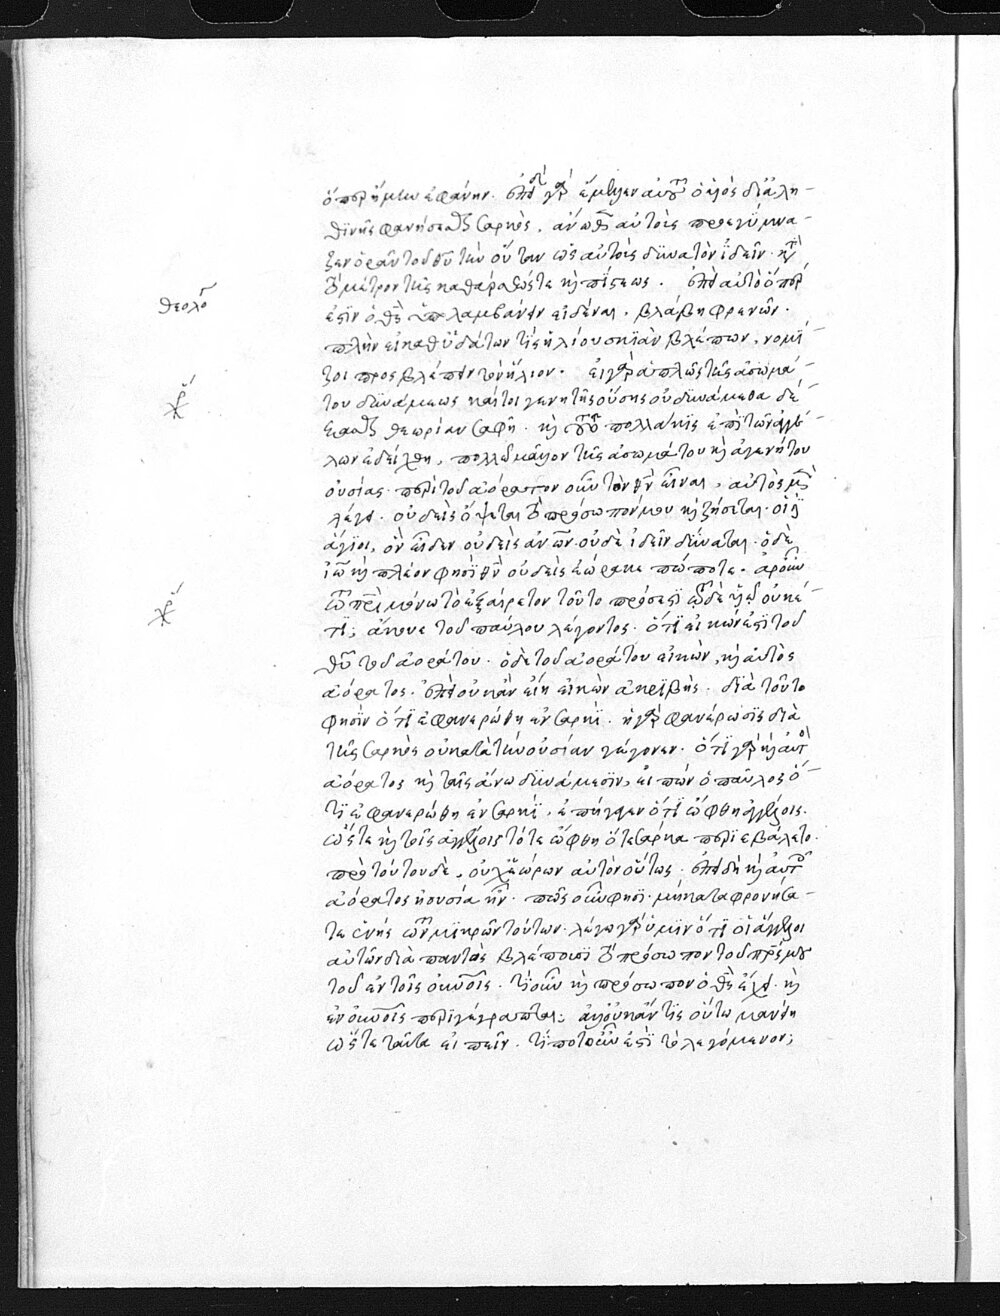 ὅπερ ἤμην ἐφάνην. ἐπειδὴ γὰρ ἔμελλεν αὐτοῦ ὁ υἱὸς διὰ ἀλη-
θινῆς φανήσεσθαι σαρκὸς, ἄνωθεν αὐτοὺς προεγύμνα-
ζεν ὁρᾶν τοῦ θυ τὴν οὐσίαν ὡς αὐτοῖς δυνατὸν ἰδεῖν. κατὰ
τὸ μέτρον τῆς καθαρότητος καὶ πίστεως. ἐπεὶ αὐτὸ ὅπερ
θεολο
ἐστὶν ὁ θς ὑπολαμβάνειν εἰδέναι, βλάβη φρενῶν.
πλὴν εἰ καθ' ὑδάτων τὶς ἡλίου σκιὰν βλέπων, νομί
ζοι προσβλέπειν τὸν ἥλιον. εἰ γὰρ ἁπλῶς τῆς ἀσωμά-
χρυ
του δυνάμεως καίτοι γενητῆς οὔσης οὐ δυνάμεθα δέ-
ξασθαι θεωρίαν σαφῆ. καὶ τοῦτο πολλάκις ἐπὶ τῶν ἀγγέ-
λων ἐδείχθη, πολλῶ μᾶλλον τῆς ἀσωμάτου καὶ ἀγενήτου
οὐσίας. περὶ τοῦ ἀόρατον οὖν τὸν θν εἶναι, αὐτὸς μὲν
λέγει. οὐδεὶς ὄψεται τὸ πρόσωπόν μου καὶ ζήσεται. οἱ δὲ
ἅγιοι, ὃν εἶδεν οὐδεὶς ἀνων οὐδὲ ἰδεῖν δύναται. ὁ δὲ
ἰω καὶ πλέον φησὶ θν οὐδεὶς ἑώρακε πώποτε. ἆρ' οὖν
χρυ
τῶ πρι μόνω τὸ ἐξαίρετον τοῦτο πρόσεστι τῶ δὲ υἱῶ οὐκέ-
τι; ἄκουε τοῦ παύλου λέγοντος. ὅτι εἰκών ἐστι τοῦ
θυ τοῦ ἀοράτου. ὁ δὲ τοῦ ἀοράτου εἰκὼν, καὶ αὐτὸς
ἀόρατος. ἐπεὶ οὐκ ἂν εἴη εἰκὼν ἀκριβής. διὰ τοῦτο
φησὶν ὅτι ἐφανερώθη ἐν σαρκί. ἡ γὰρ φανέρωσις διὰ
τῆς σαρκὸς οὐ κατὰ τὴν οὐσίαν γέγονεν. ὅτι γὰρ καὶ αὐτὸς
ἀόρατος καὶ ταῖς ἄνω δυνάμεσιν, εἰπὼν ὁ παῦλος ὅ-
τι ἐφανερώθη ἐν σαρκί, ἐπήγαγεν ὅτι ὤφθη ἀγγέλοις.
ὥστε καὶ τοῖς ἀγγέλοις τότε ὤφθη ὅτε σάρκα περιεβάλετο.
πρὸ τούτου δὲ, οὐχ ἑώρων αὐτὸν οὕτως. ἐπειδὴ καὶ αὐτοῖς
ἀόρατος ἡ οὐσία ἦν. πῶς οὖν φησι. μὴ καταφρονήσα-
τε ἑνὸς τῶν μικρῶν τούτων. λέγω γὰρ ὑμῖν ὅτι οἱ ἄγγελοι
αὐτῶν διὰ παντὸς βλέπουσι τὸ πρόσωπον τοῦ πρς μου
τοῦ ἐν τοῖς οὐνοῖς. τί οὖν καὶ πρόσωπον ὁ θς ἔχει. καὶ
ἐν οὐνοῖς περιγέγραπται; ἀλλ' οὐκ ἄν τις οὕτω μανείη
ὥστε ταῦτα εἰπεῖν. τί ποτ' οὖν ἐστὶ τὸ λεγόμενον;